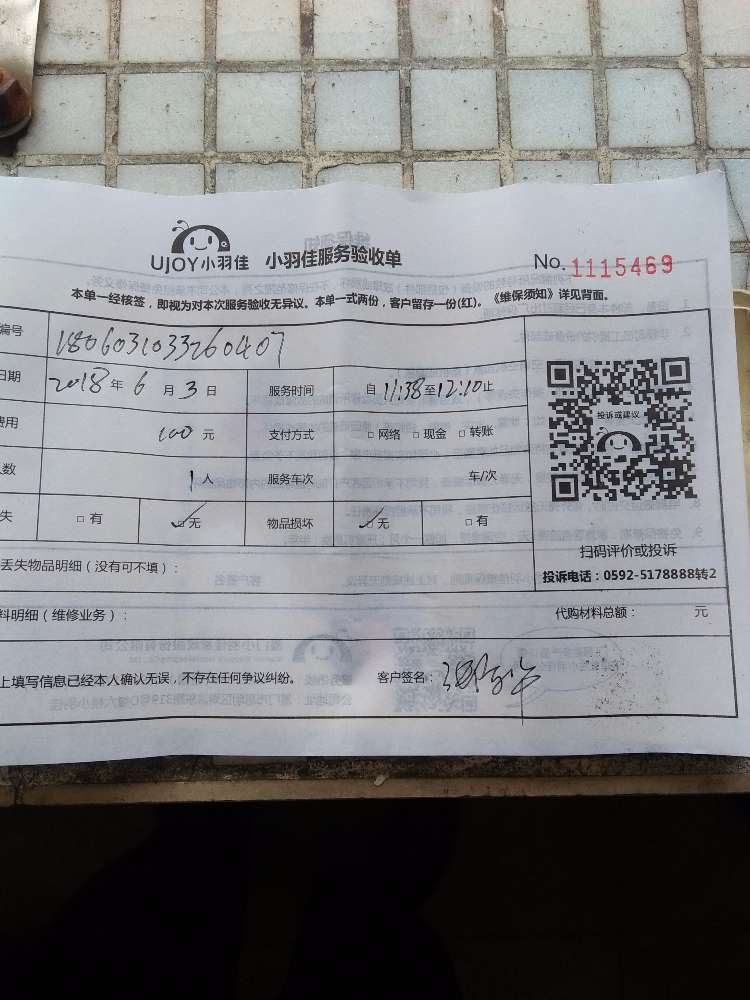 UJOY小羽佳 小羽佳服务验收单 No.1115469
本单一经核签，即视为对本次服务验收无异议。本单一式两份，客户留存一份(红)。《维保须知》详见背面。
编号 1806031033260407
日期 2018年6月3日 服务时间 自11:38至12:10止
费用 100元 支付方式 □网络 □现金 □转账
人数 1人 服务车次 车/次
失 □有 ☑无 物品损坏 ☑无 □有
投诉或建议
扫码评价或投诉
投诉电话：0592-5178888转2
丢失物品明细（没有可不填）：
料明细（维修业务）： 代购材料总额： 元
上填写信息已经本人确认无误，不存在任何争议纠纷。 客户签名：